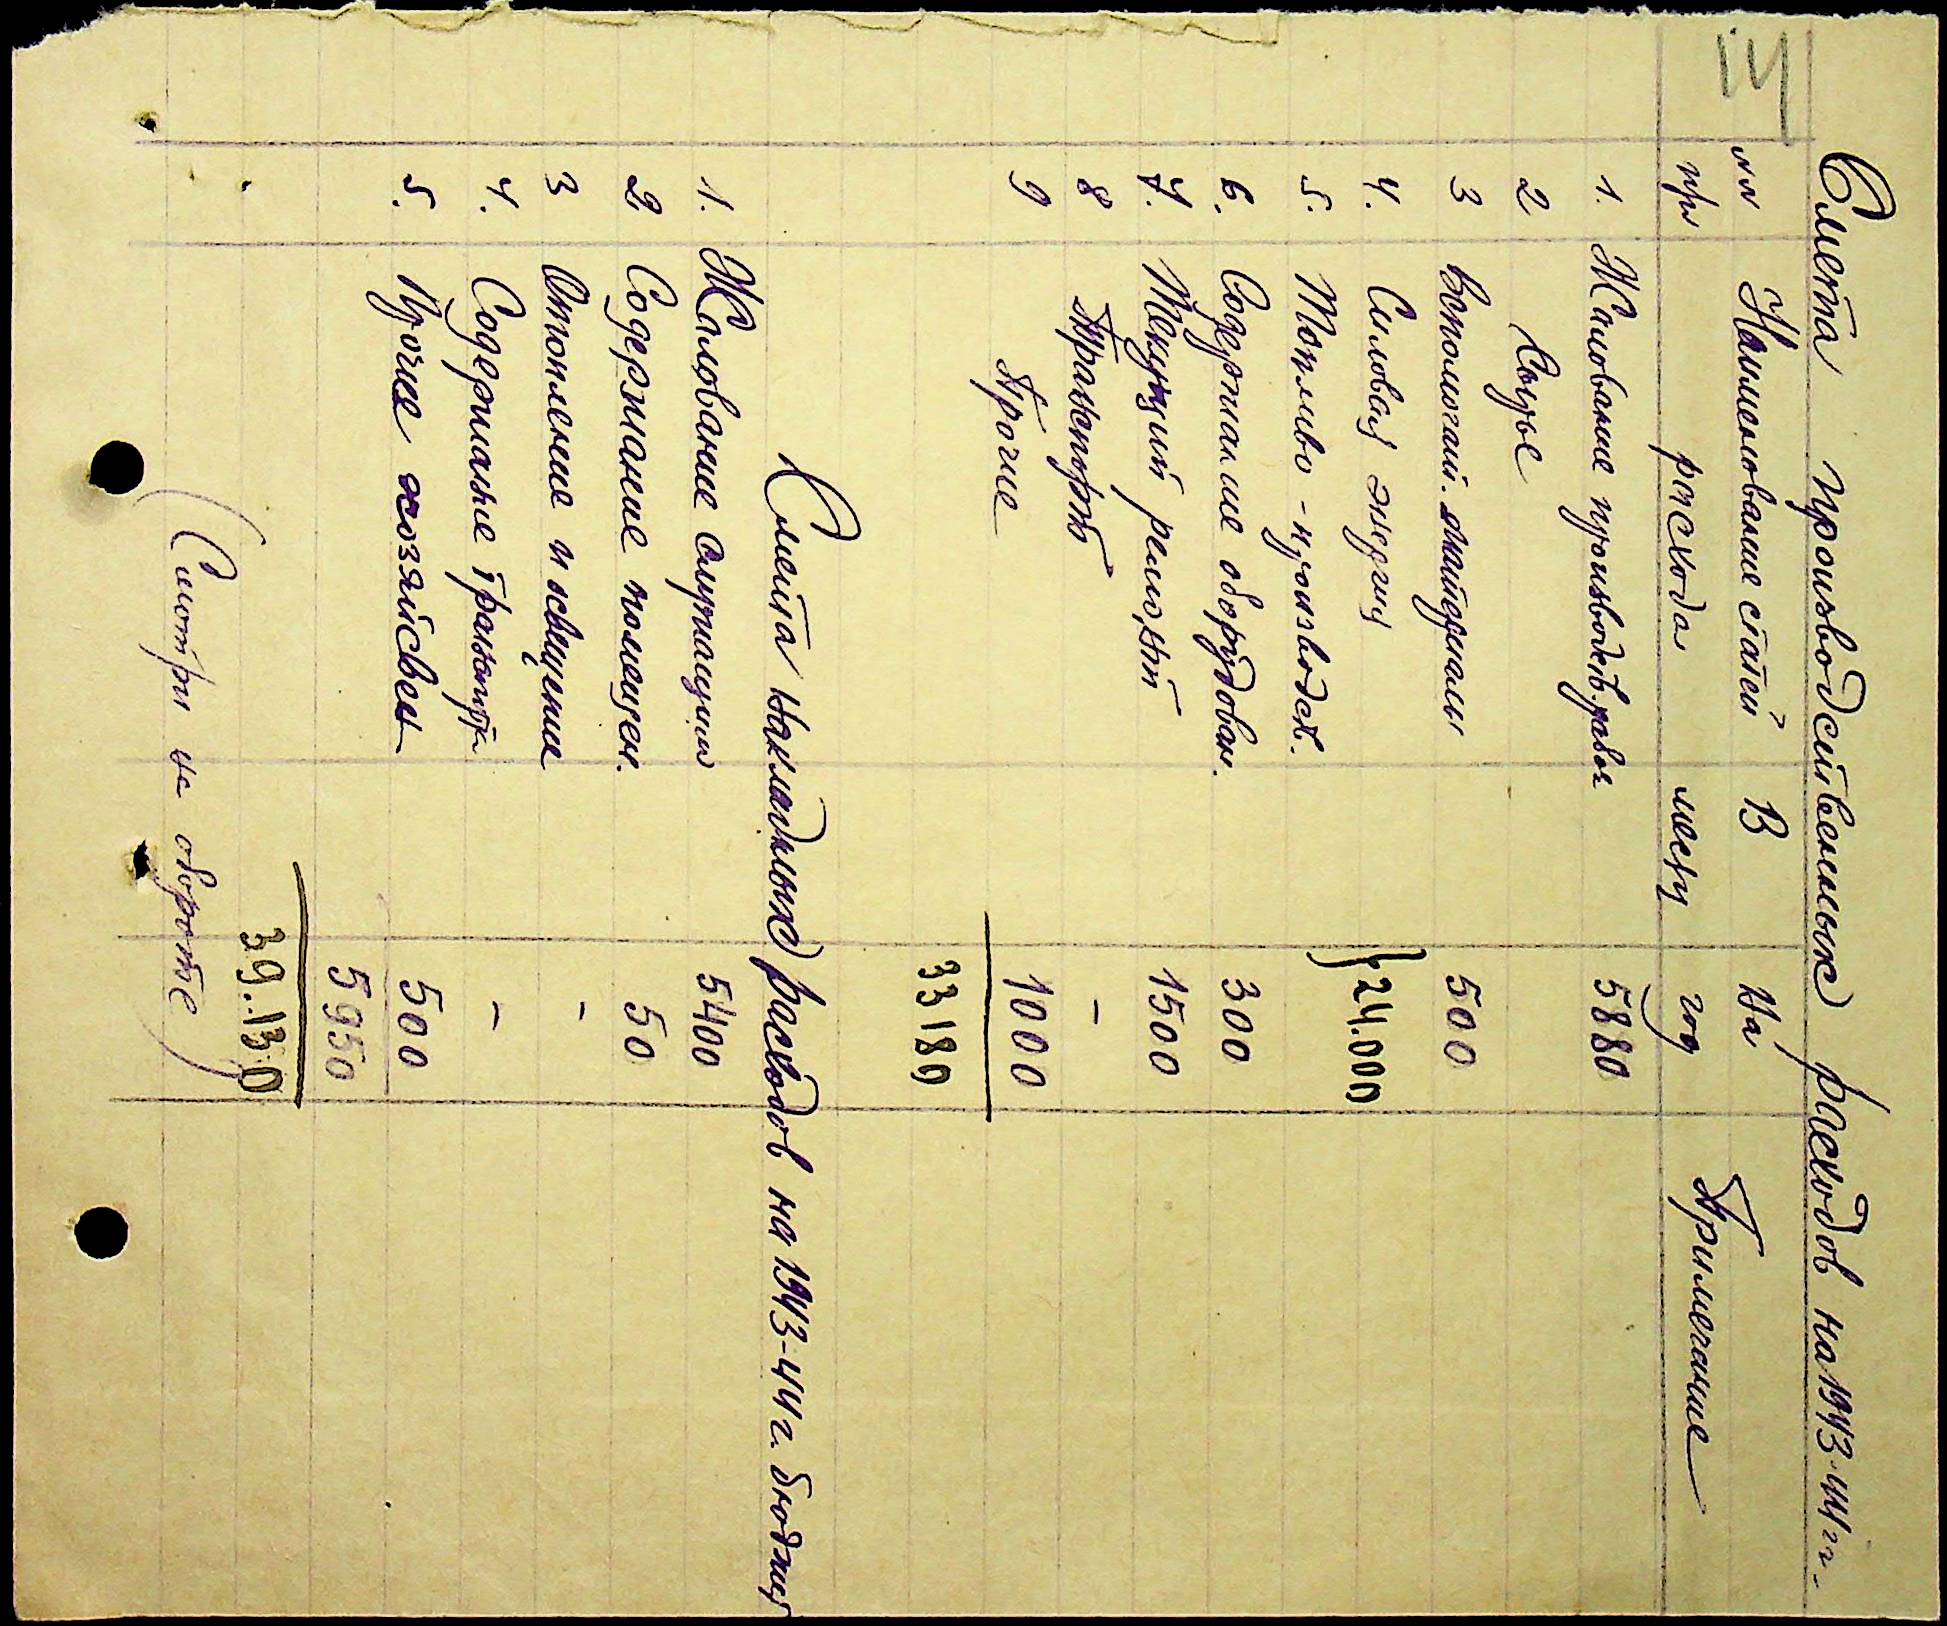 14
Смета производственных расходов на 1943-44 гг.
№№ Наименование статей В На Примечание
пр расхода месяц год
1. Жалование производств. рабоч 5880
2 Сырье
3 Вспомогат. материалы 500
4. Силовая энергия } 24.000
5. Топливо - производск.
6. Содержание оборудован. 300
7. Текущий ремонт 1500
8 Транспорт -
9 Прочие 1000
33180
Смета накладных расходов на 1943-44 г. бюджет
1. Жалование служащим 5400
2 Содержание помещен. 50
3 Отопление и освещение -
4. Содержание транспорта -
5. Прочие хозяйсвен 500
5950
39.130
(Смотри на обороте)